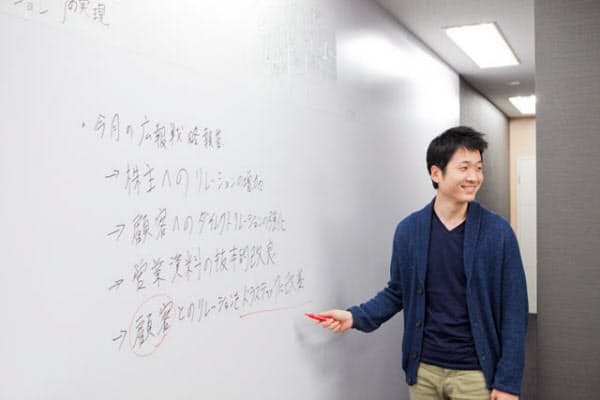 ョン"の実現
・今月の広報戦略報告
→株主へのリレーションの増加
→顧客へのダイレクトリレーションの強化
→営業資料の抜本的改良
→顧客とのリレーションをドラスティックに改善